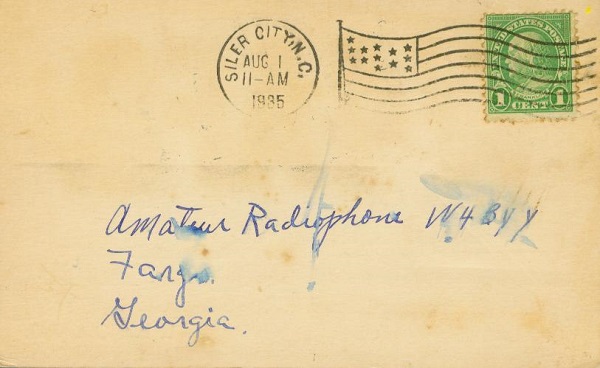 SILER CITY, N.C.
AUG 1
11-AM
1935
UNITED STATES POSTAGE
1 CENT 1
Amateur Radiophone W4BYY
Fargo.
Georgia.